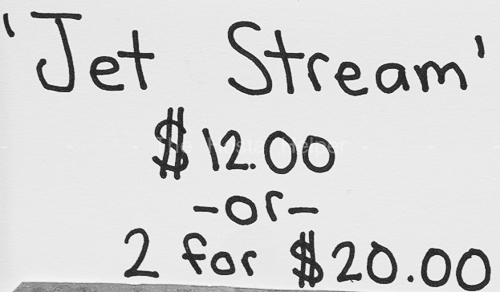 'Jet Stream'
$12.00
-or-
2 for $20.00